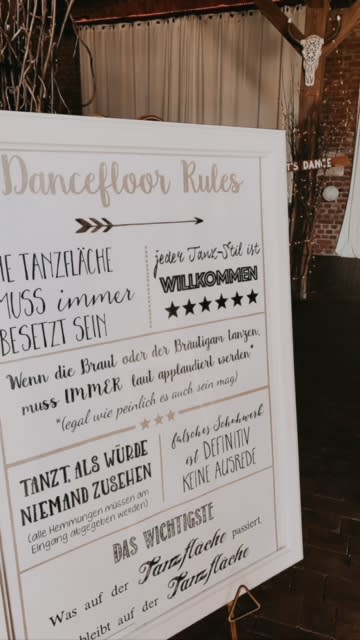 Dancefloor Rules
TANZFLÄCHE
MUSS immer
BESETZT SEIN
jeder Tanz-Stil ist
WILLKOMMEN
Wenn die Braut oder der Bräutigam tanzen,
muss IMMER laut applaudiert werden*
*(egal wie peinlich es auch sein mag)
TANZT, ALS WÜRDE
NIEMAND ZUSEHEN
(alle Hemmungen müssen am
Eingang abgegeben werden)
falsches Schuhwerk
ist DEFINITIV
KEINE AUSREDE
DAS WICHTIGSTE
Was auf der Tanzfläche passiert,
bleibt auf der Tanzfläche
'S DANCE